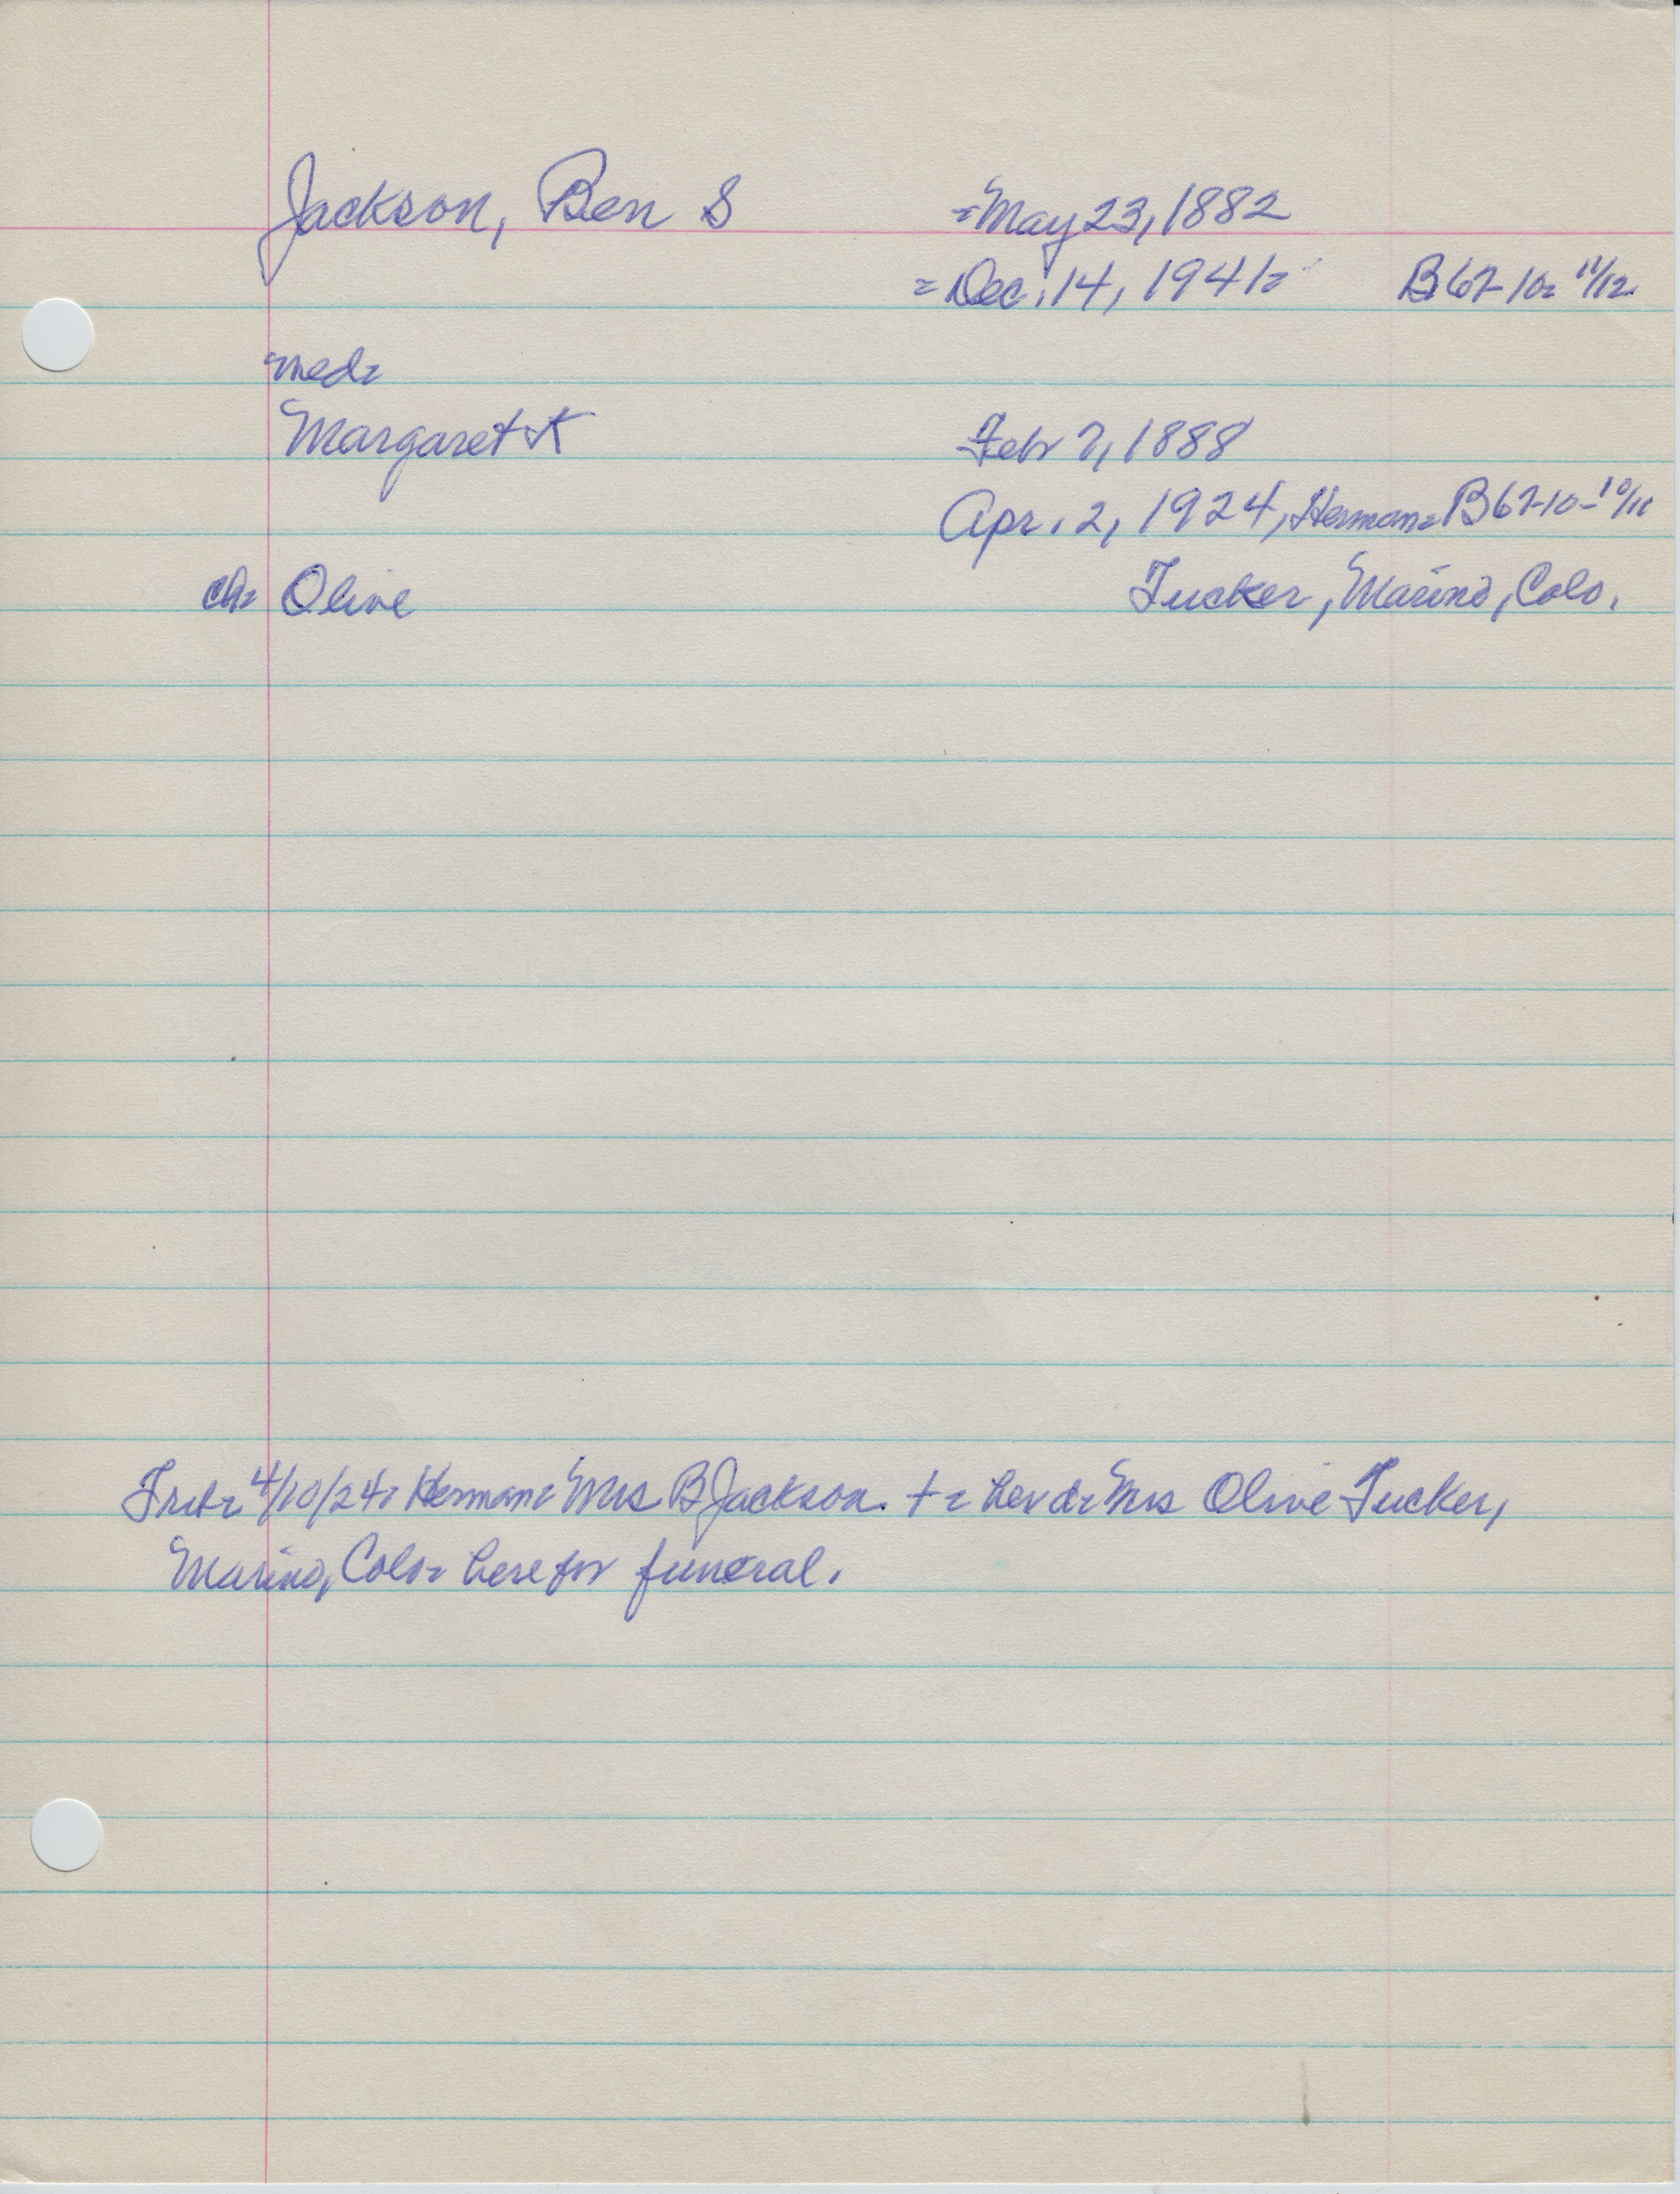 Jackson, Ben S =May 23, 1882
=Dec. 14, 1941= B67-10= 11/12
med=
Margaret K Feb 7, 1888
Apr. 2, 1924, Herman= B67-10-10/11
ch= Olive Tucker, Marino, Colo.
4/10/24= Herman= Mrs B Jackson. += her d= Mrs Olive Tucker,
Marino, Colo= here for funeral.